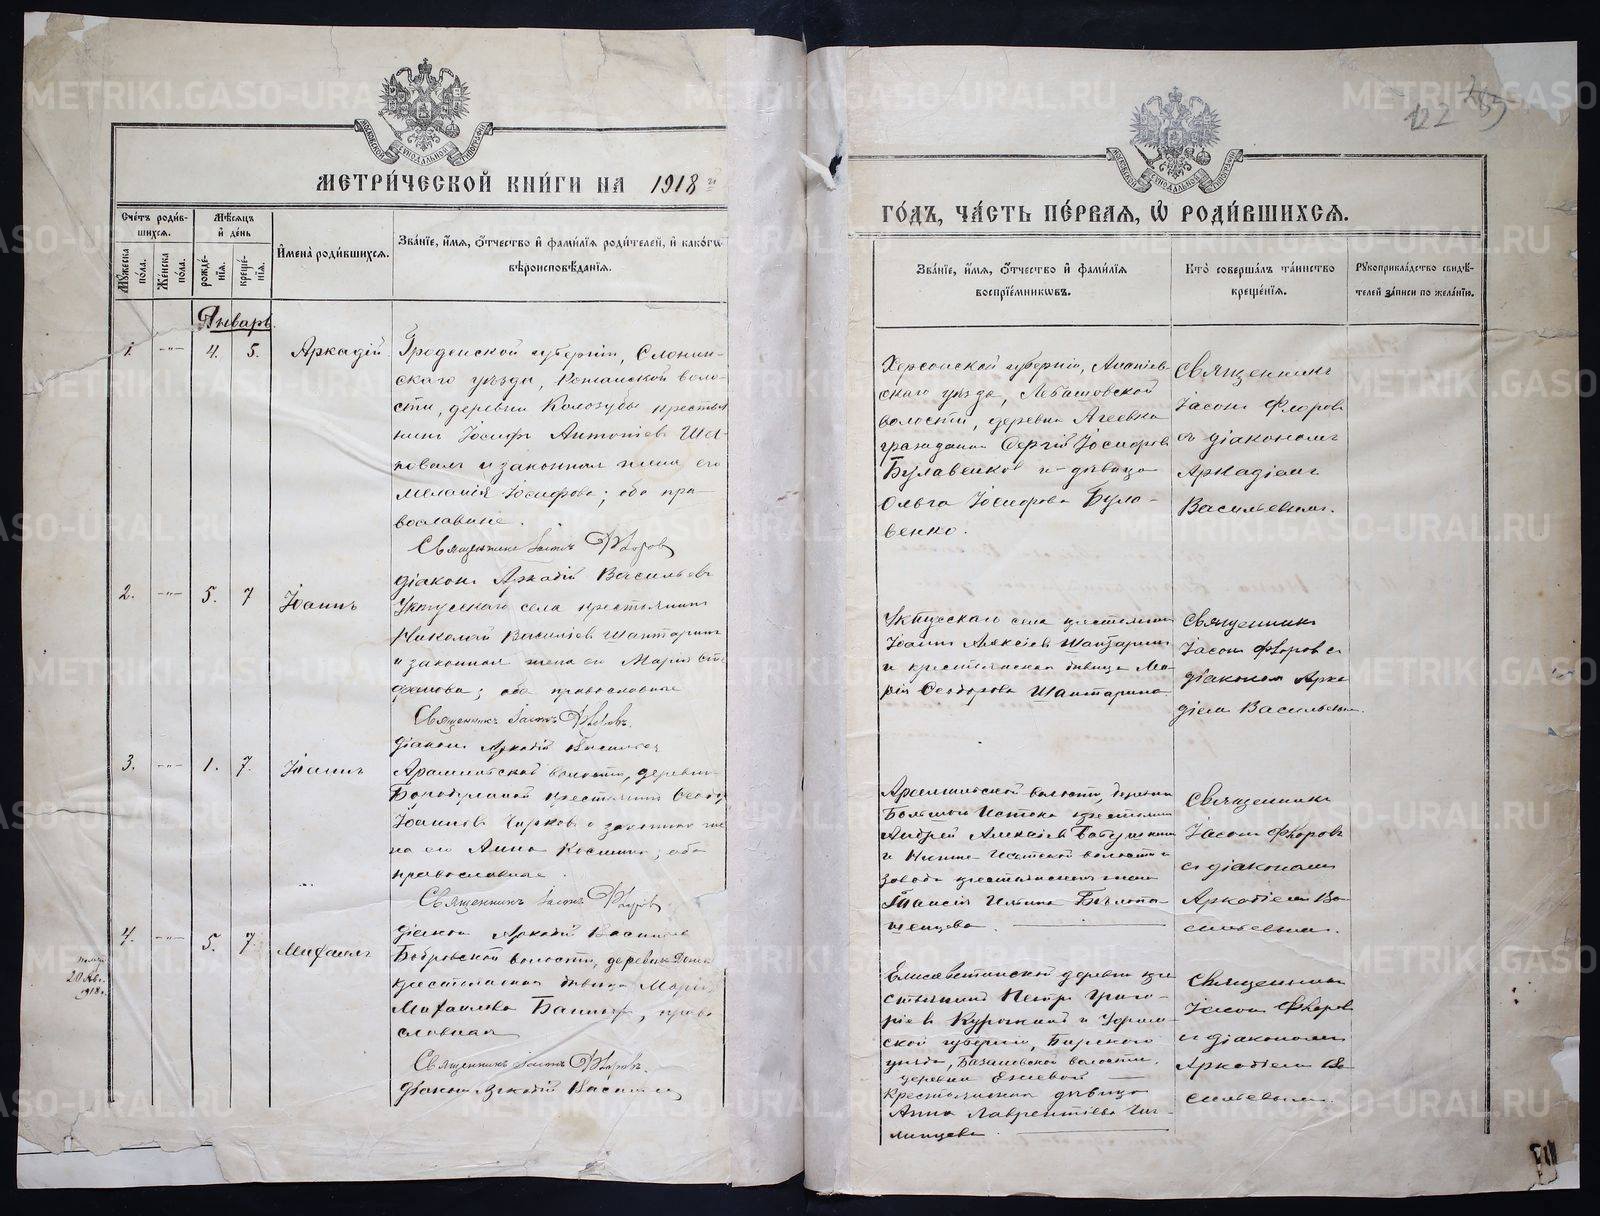 МЕТРИ́ЧЕСКОЙ КНИ́ГИ НА 1918 й
Сче́тъ роди́в-
шихсѧ.
Мѣ́сѧцъ
и҆ де́нь
Му́жеска по́ла.
Же́нска по́ла.
рожде́-
нїѧ.
креще́-
нїѧ.
И҆мена̀ роди́вшихсѧ.
Зва́нїе, и҆́мѧ, ѻ҆́тчество и҆ фами́лїѧ роди́телей, и҆ како́гѡ
вѣроисповѣ́данїѧ.
Январь.
1. —"— 4. 5. Аркадій
Гроденской губерніи, Слоним-
скаго уѣзда, Котанской воло-
сти, деревни Колозубы крестья
нинъ Іосифъ Антоніевъ
и законная жена его
Меланія Іосифова; оба пра-
вославные.
Священникъ Іасонъ Флоровъ
діаконъ Аркадій Васильевъ
2. —"— 5. 7 Іоаннъ
Уктусскаго села крестьянинъ
Николай Василіевъ Шантаринъ
и законная жена его Марія Сте
фанова; оба православные
Священникъ Іасонъ Флоровъ.
діаконъ Аркадій Васильев
3. —"— 1. 7. Іоаннъ
Арамильской волости, деревни
крестьянинъ Ѳеодо
Іоанновъ Чирковъ и законная же
на его Анна Косьмина; оба
православные.
Священникъ Іасонъ Флоровъ
діаконъ Аркадій Васильев
4. —"— 5. 7. Михаилъ
20 Яв.
1918 г.
Бобровской волости, деревни
крестьянская дѣвица Марія
Михаилова, право
славная
Священникъ Іасонъ Флоровъ.
діаконъ Аркадій Васильев
122
ГО́ДЪ, ЧА́СТЬ ПЕ́РВАѦ, Ѡ҆ РОДИ́ВШИХСѦ.
Зва́нїе, и҆́мѧ, ѻ҆́тчество и҆ фами́лїѧ
воспрїе́мникѡвъ.
Кто̀ соверша́лъ та́инство
креще́нїѧ.
Рꙋкоприкла́дство свидѣ́-
телей за́писи по жела́нїю.
Херсонской губерніи, Ананіев-
скаго уѣзда,
волости, деревни Агеевка
гражданинъ Сергій Іосифовъ
Булавенковъ и дѣвица
Ольга Іосифова Була-
венко.
Священникъ
Іасонъ Флоровъ
съ діакономъ
Аркадіемъ
Васильевымъ.
Уктусскаго села крестьянинъ
Іоаннъ Алексіевъ Шантаринъ
и крестьянская дѣвица Ма-
рія Ѳеодорова Шантарина
Священникъ
Іасонъ Флоровъ съ
діакономъ Арка
діемъ Васильевым.
Арамильской волости, деревни
Большой Истока крестьянинъ
Андрей Алексіевъ Бабушкинъ
и Нижне-Исетской волости и
завода крестьянская жена
Таисія Ильина
Священникъ
Іасонъ Флоровъ
съ діакономъ
Аркадіемъ Ва-
сильевымъ.
Елисаветинской деревни кре
стьянинъ Петръ Григо-
ріевъ и Уфим-
ской губерніи, Бирскаго
уѣзда, волости,
деревни
Крестьянская дѣвица
Анна Лаврентіева
Священникъ
Іасонъ Флоровъ
съ діакономъ
Аркадіемъ Ва-
сильевымъ.
METRIKI.GASO-URAL.RU